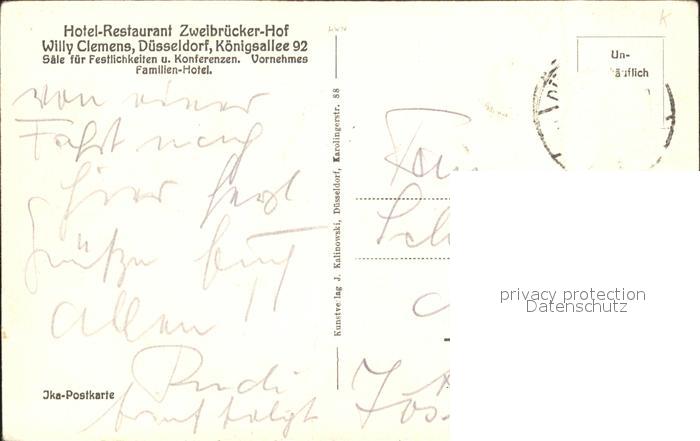 Hotel-Restaurant Zweibrücker-Hof
Willy Clemens, Düsseldorf, Königsallee 92
Säle für Festlichkeiten u. Konferenzen. Vornehmes
Familien-Hotel.
von einer
Fahrt nach
hier herzl
Grüße Euch
allen!!
Rudi
Brief folgt
Jka-Postkarte
Kunstverlag J. Kalinowski, Düsseldorf, Karolingerstr. 88
Un-
käuflich
Fam
Sch
privacy protection
Datenschutz